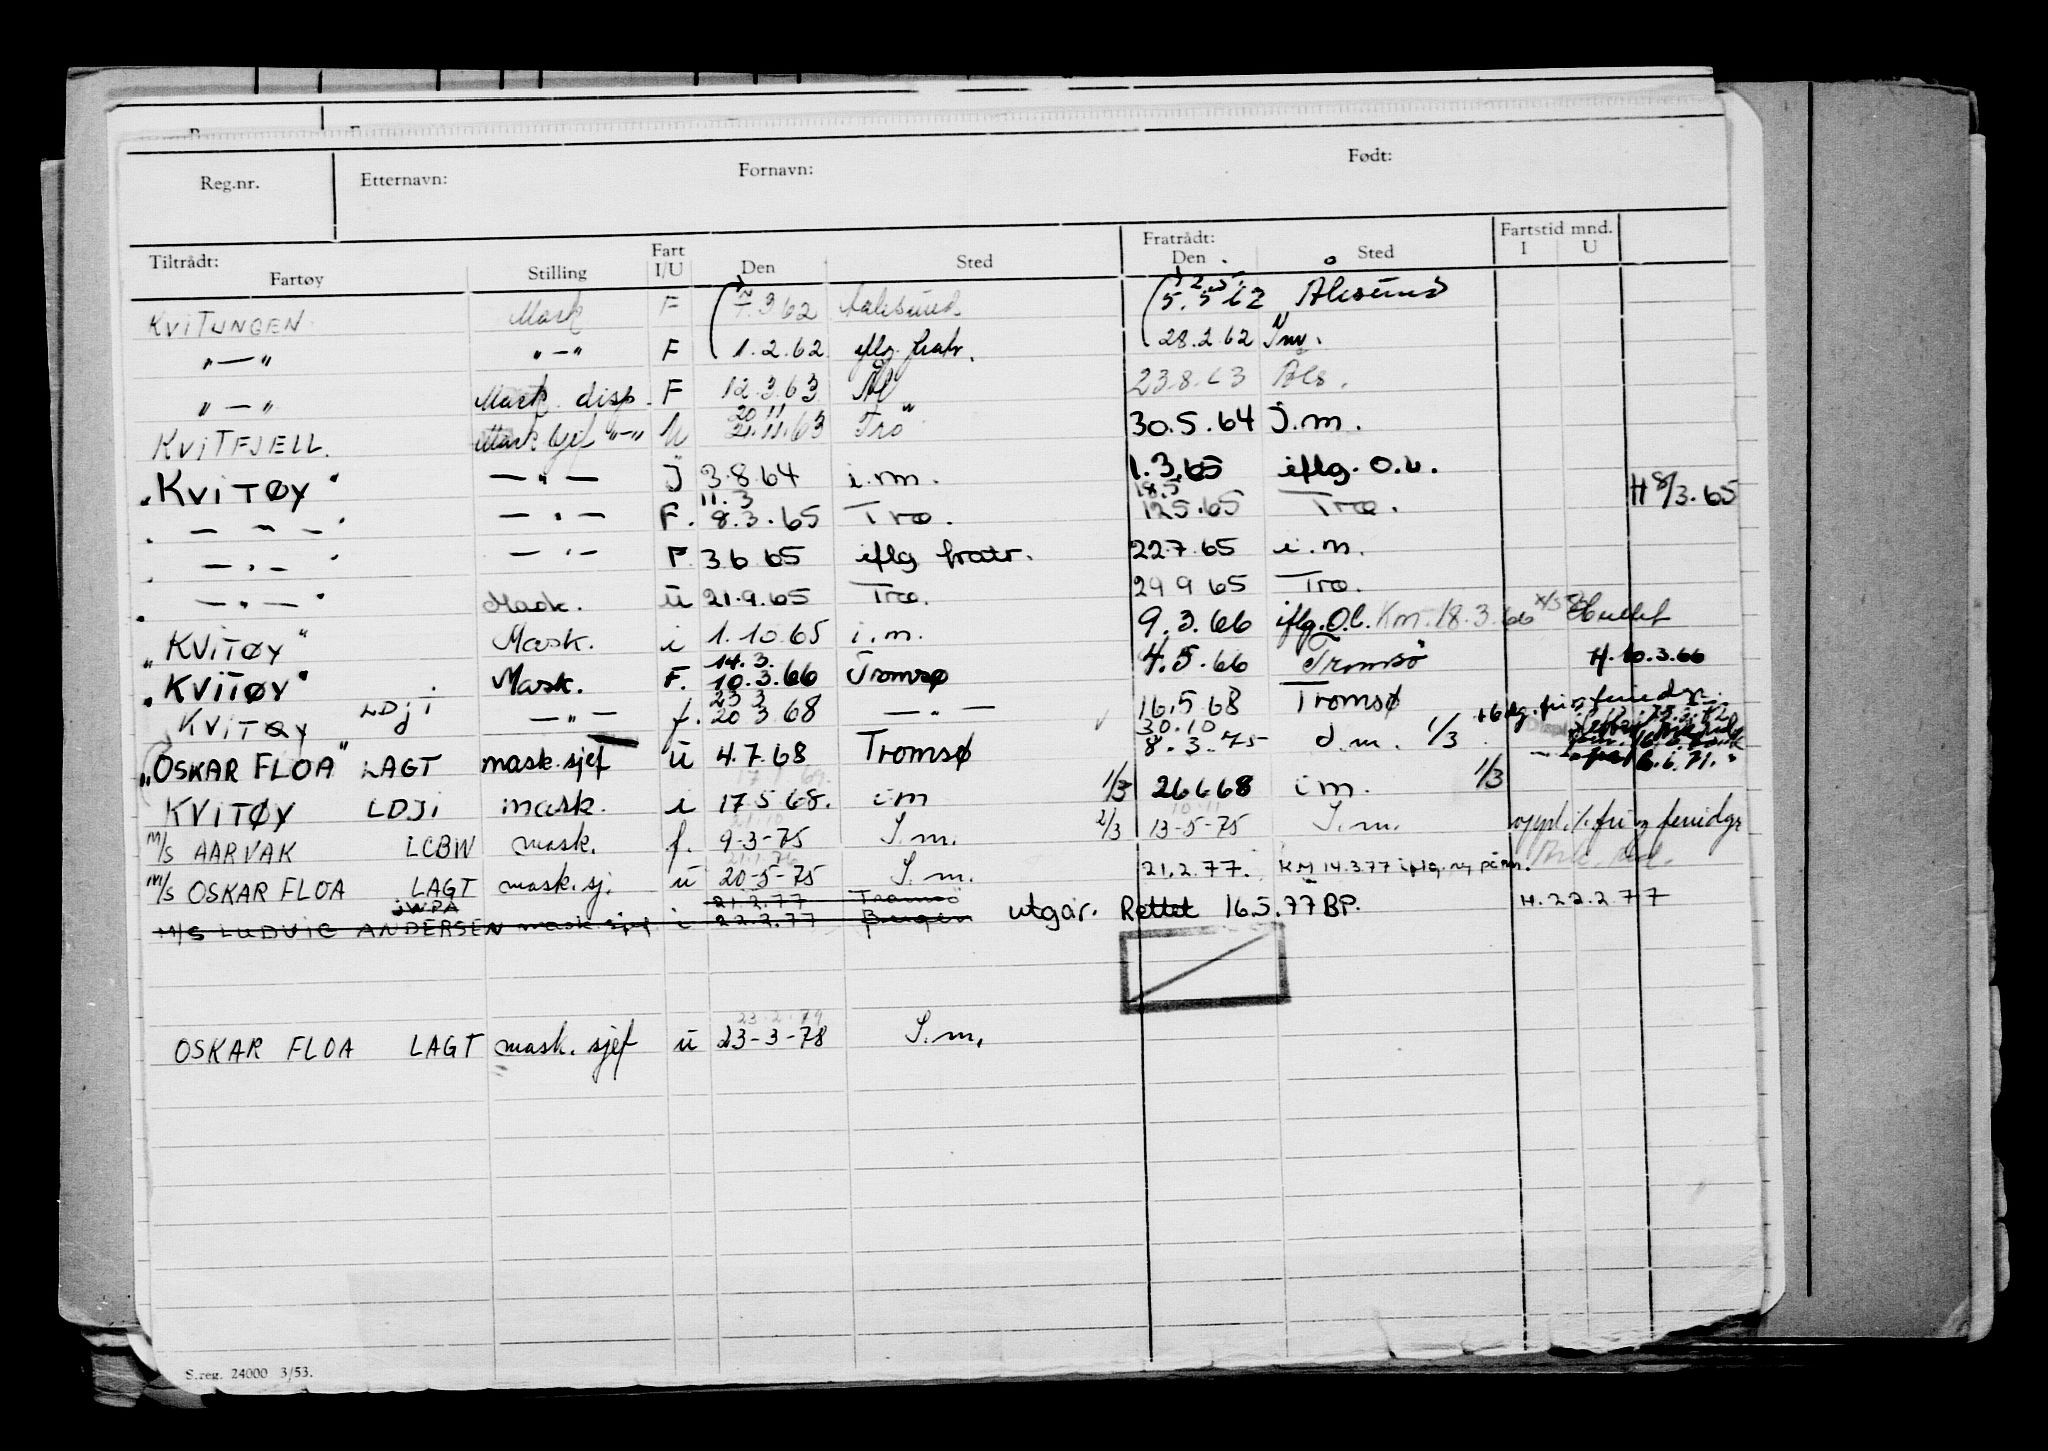 Reg.nr. Etternavn: Fornavn: Født:
Tiltrådt: Fartøy Stilling Fart I/U Den Sted Fratrådt: Den Sted Fartstid mnd. I U
KVITUNGEN Mask F 7.3.62 Aalesund 5.5.62 Alesund
" — " " — " F 1.2.62 iflg. fratr. 28.2.62
" — " Mask. disp. F 12.3.63 Ål 23.8.63 Åls.
20 11
KVITFJELL. Masksjef " — " U 21.11.63 Tro 30.5.64 i.m.
"KVITØY" — " — i 3.8.64 i.m. 1.3.65 iflg. o.b.
11.3 18.5
— " — — " — F. 8.3.65 Tro. 12.5.65 Tro. H 8/3.65
— " — — " — F. 3 6 65 iflg fratr. 22.7.65 i.m.
— " — Mask. ü 21.9.65 Tro. 29 9 65 Tro.
"KVITØY" Mask. i 1.10.65 i.m. 9.3.66 iflg. O.b. Km. 18.3.66
14.3.
"KVITØY" Mask. F. 10.3.66 Tromsø 4.5.66 Tromsö H. 10.3.66
23 3
KVITØY LDJI — " — f. 20 3 68 — " — 16.5 68 Tromsø
30.10
"OSKAR FLOA" LAGT mask.sjef ü 4.7.68 Tromsø 8.3.75 d.m. 1/3
KVITØY LDJI mask. i 17 5 68. im 1/3 26 6 68 im. 1/3
21/10 10.11
M/S AARVAK LCBW mask. f. 9-3-75 I.m. 2/3 13-5-75 I.m. fri og feriedgr
21.1.76
M/S OSKAR FLOA LAGT mask.sj. ü 20-5-75 I.m. 21.2.77. KM 14.3.77 iflg. ny
JWPA 21.2.77 Tromsö
M/S LUDVIG ANDERSEN mask.sjef i 22.2.77 Bergen utgår. Rettet 16.5.77 BP. H.22.2 77
23.2.79
OSKAR FLOA LAGT mask. sjef ü 23-3-78 I.m.
S.reg. 24000 3/53.